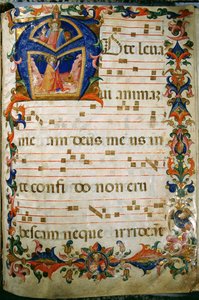 AD te leua
ui animaz
me am deus me us in
te confi do non eru
bescam neque irrideāt